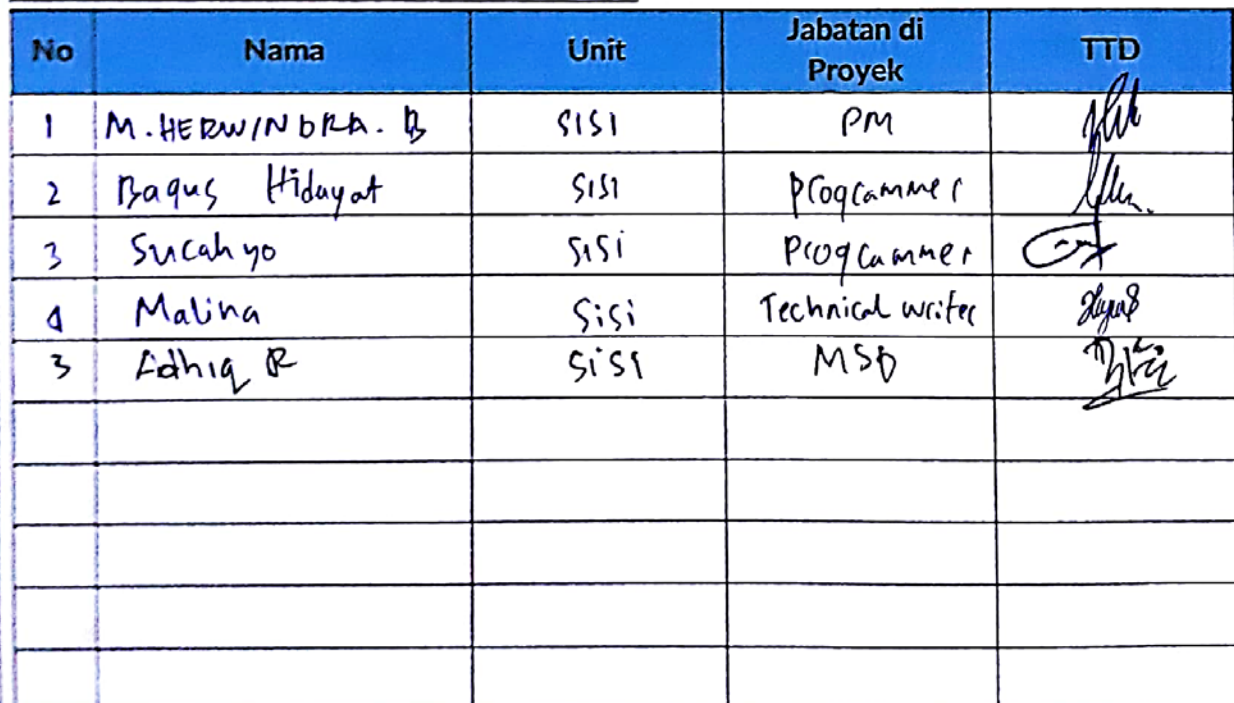 No Nama Unit Jabatan di Proyek TTD
1 M. HERWINDRA. B SISI PM
2 Bagus Hidayat SISI Programmer
3 Sucahyo SISI Programmer
4 Malina SiSi Technical writer
3 Adhiq R SiSI MSD